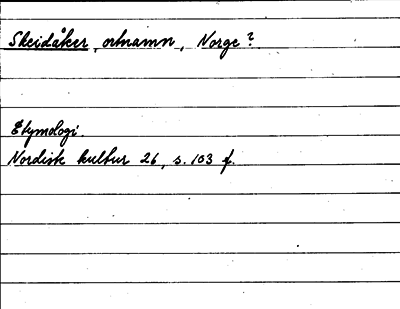 Skeidåker, ortnamn, Norge?
Etymologi.
Nordisk kultur 26, s. 103 f.